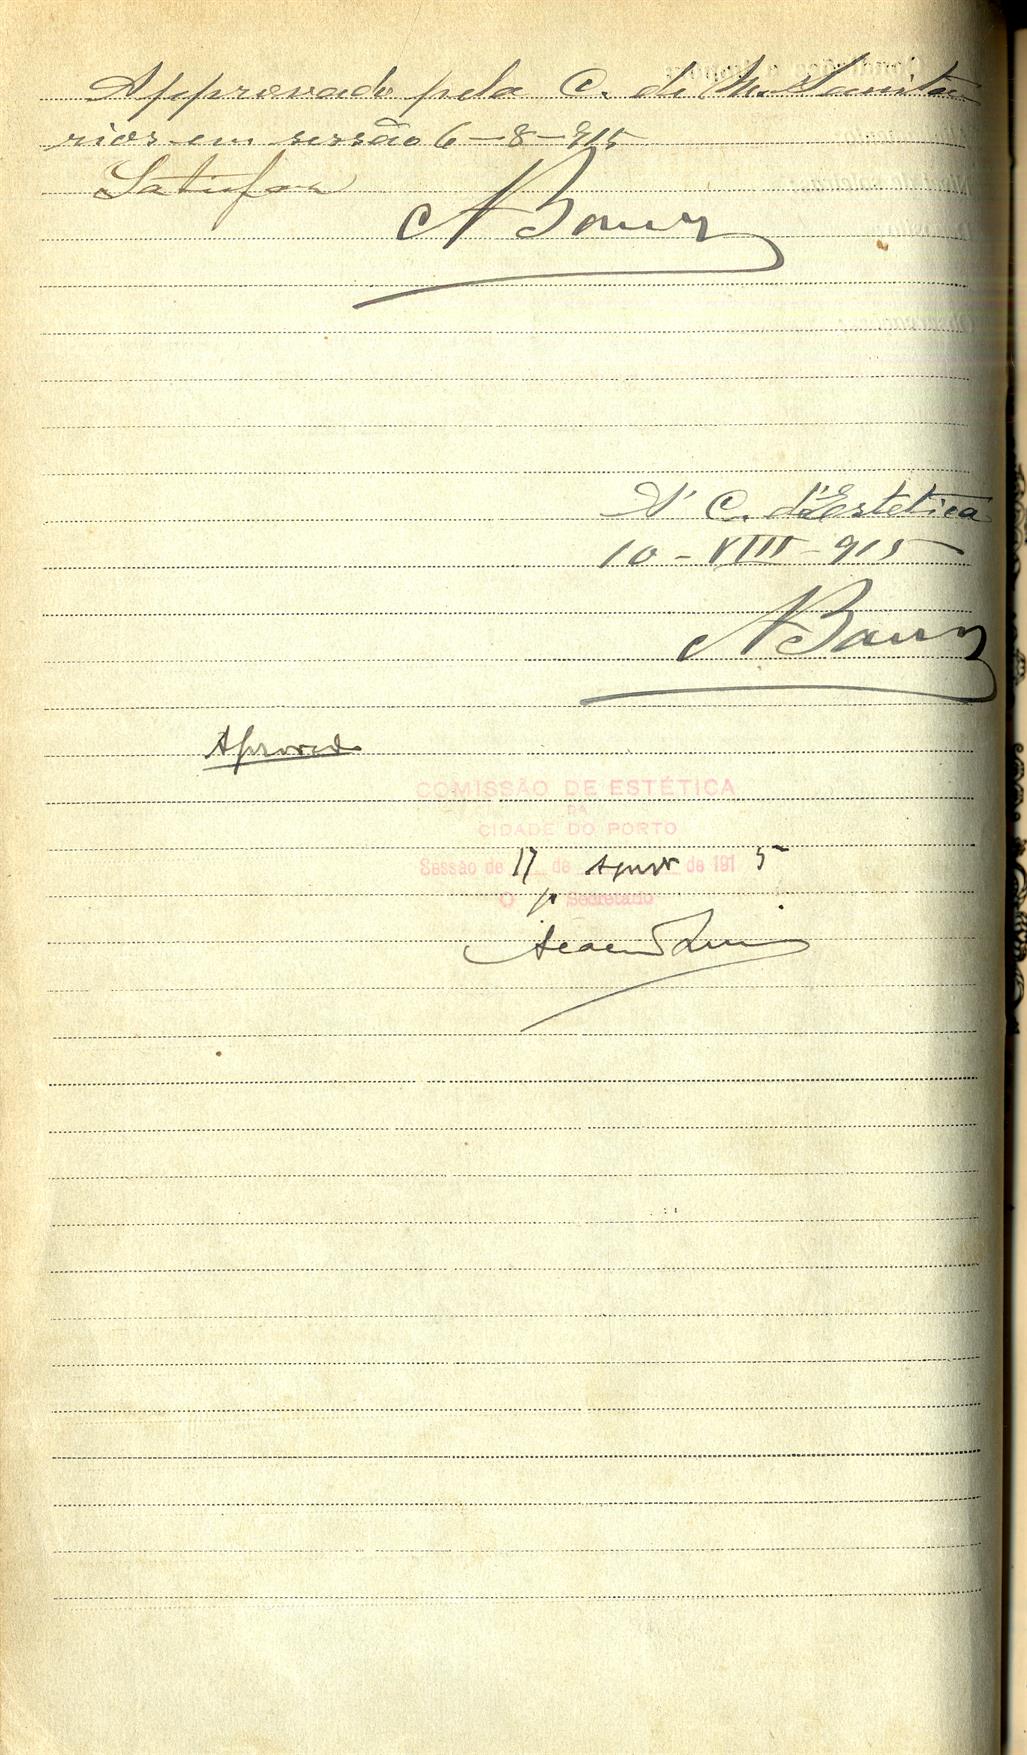 Approvado pela C. de M. Sanita
rios em sessão 6-8-915
Satisfaz
A' C. d'Estetica
10-VIII-915
Aprovado
COMISSÃO DE ESTÉTICA
DA
CIDADE DO PORTO
Sessão de 17 de Agosto de 1915
O Secretario